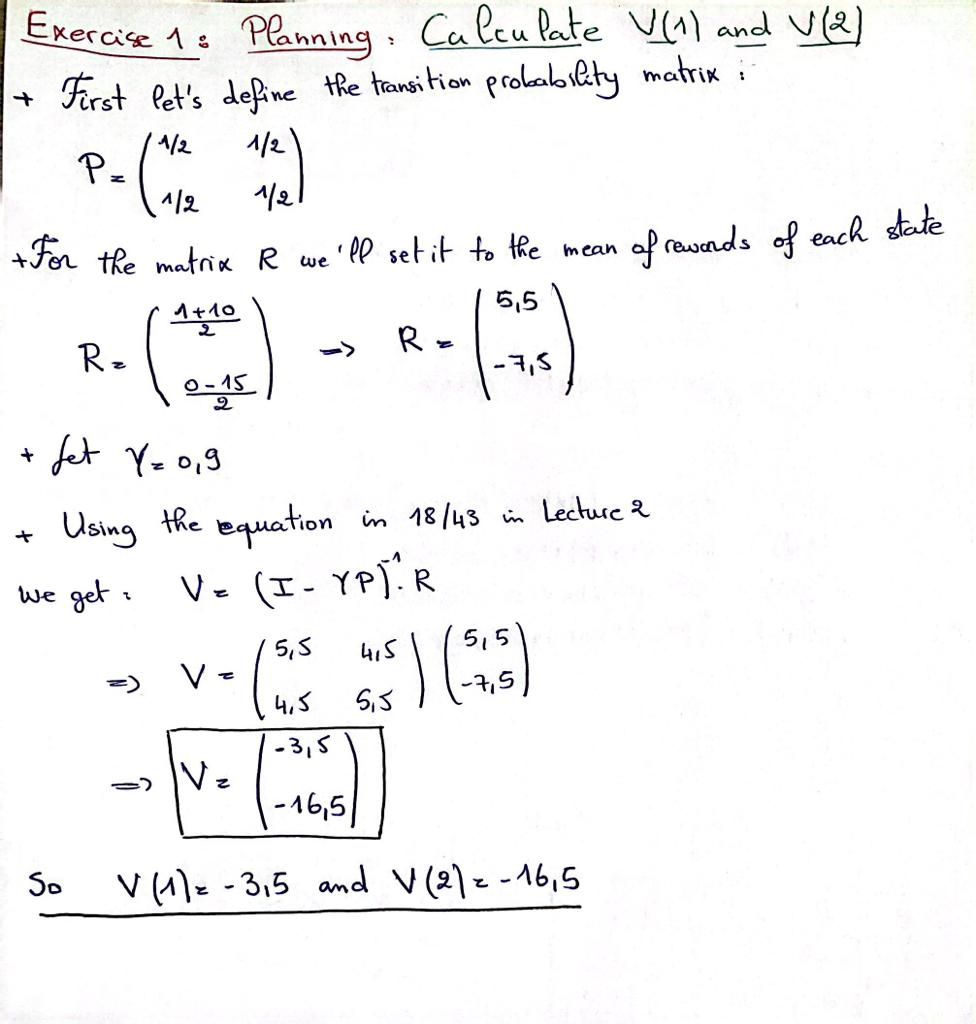 Exercise 1: Planning: Calculate V(1) and V(2)
+ First let's define the transition probability matrix:
P = ( 1/2 1/2
1/2 1/2 )
+ For the matrix R we'll set it to the mean of rewards of each state
R = ( (1+10)/2
(0-15)/2 ) => R = ( 5,5
-7,5 )
+ let γ = 0,9
+ Using the equation in 18/43 in Lecture 2
we get: V = (I - γP)⁻¹. R
=> V = ( 5,5 4,5
4,5 5,5 ) ( 5,5
-7,5 )
=> V = ( -3,5
-16,5 )
So V(1) = -3,5 and V(2) = -16,5